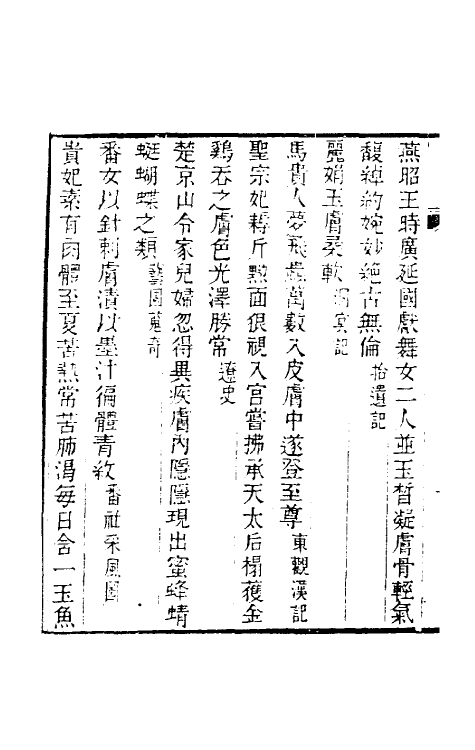 燕昭王時廣延國獻舞女二人並玉皙凝膚骨輕氣
馥綽約婉妙絕古無倫拾遺記
麗娟玉膚柔軟洞冥記
馬貴人夢飛蟲萬數入皮膚中遂登至尊東觀漢記
聖宗妃耨斤黝面很視入宮嘗拂承天太后榻獲金
鷄吞之膚色光澤勝常遼史
楚京山令家兒婦忽得異疾膚內隱隱現出蜜蜂蜻
蜓蝴蝶之類蓺圃蒐奇
番女以針刺膚漬以墨汁徧體青紋番社采風圖
貴妃素有肉體至夏苦熱常苦肺渴每日含一玉魚